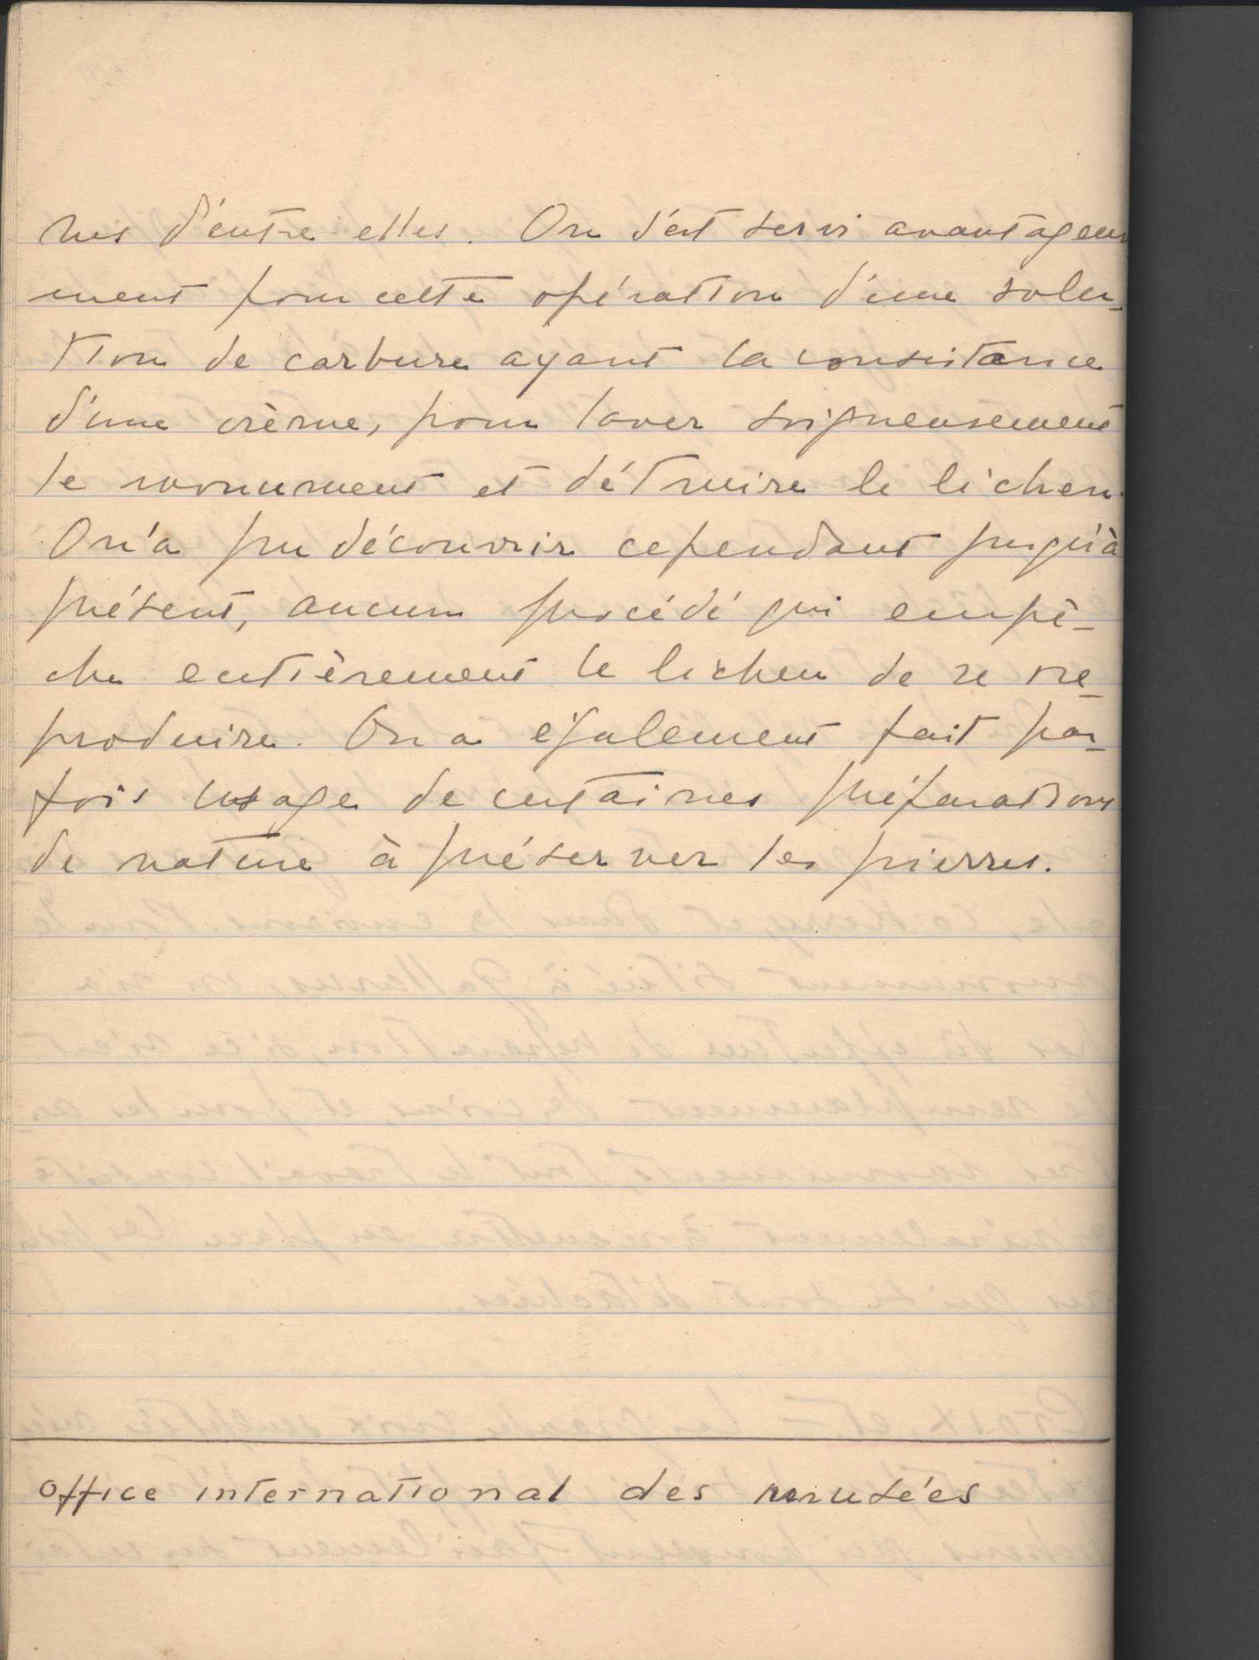 nes d'entre elles. On s'est servi avantageuse
ment pour cette opération d'une solu-
tion de carbure ayant la consistance
d'une crème, pour laver soigneusement
le monument et détruire le lichen.
On n'a pu découvrir cependant jusqu'à
présent, aucun procédé qui empê-
che entièrement le lichen de se re-
produire. On a également fait par-
fois usage de certaines préparations
de nature à préserver les pierres.
Office international des musées